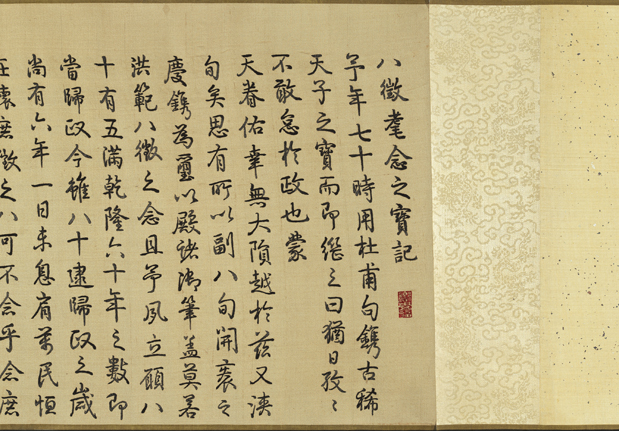 八徵耄念之寶記
予年七十時用杜甫句鐫古稀
天子之寶而即繼之曰猶日孜〻
不敢怠於政也蒙
天眷佑幸無大隕越於茲又浹
旬矣思有所以副八旬開袠之
慶鐫為璽以殿諸御筆蓋莫若
洪範八徵之念且予夙立願八
十有五滿乾隆六十年之數即
當歸政今雖八十逮歸政之歲
尚有六年一日未息肩萬民恒
在懷庶徵之八可不念乎念庶